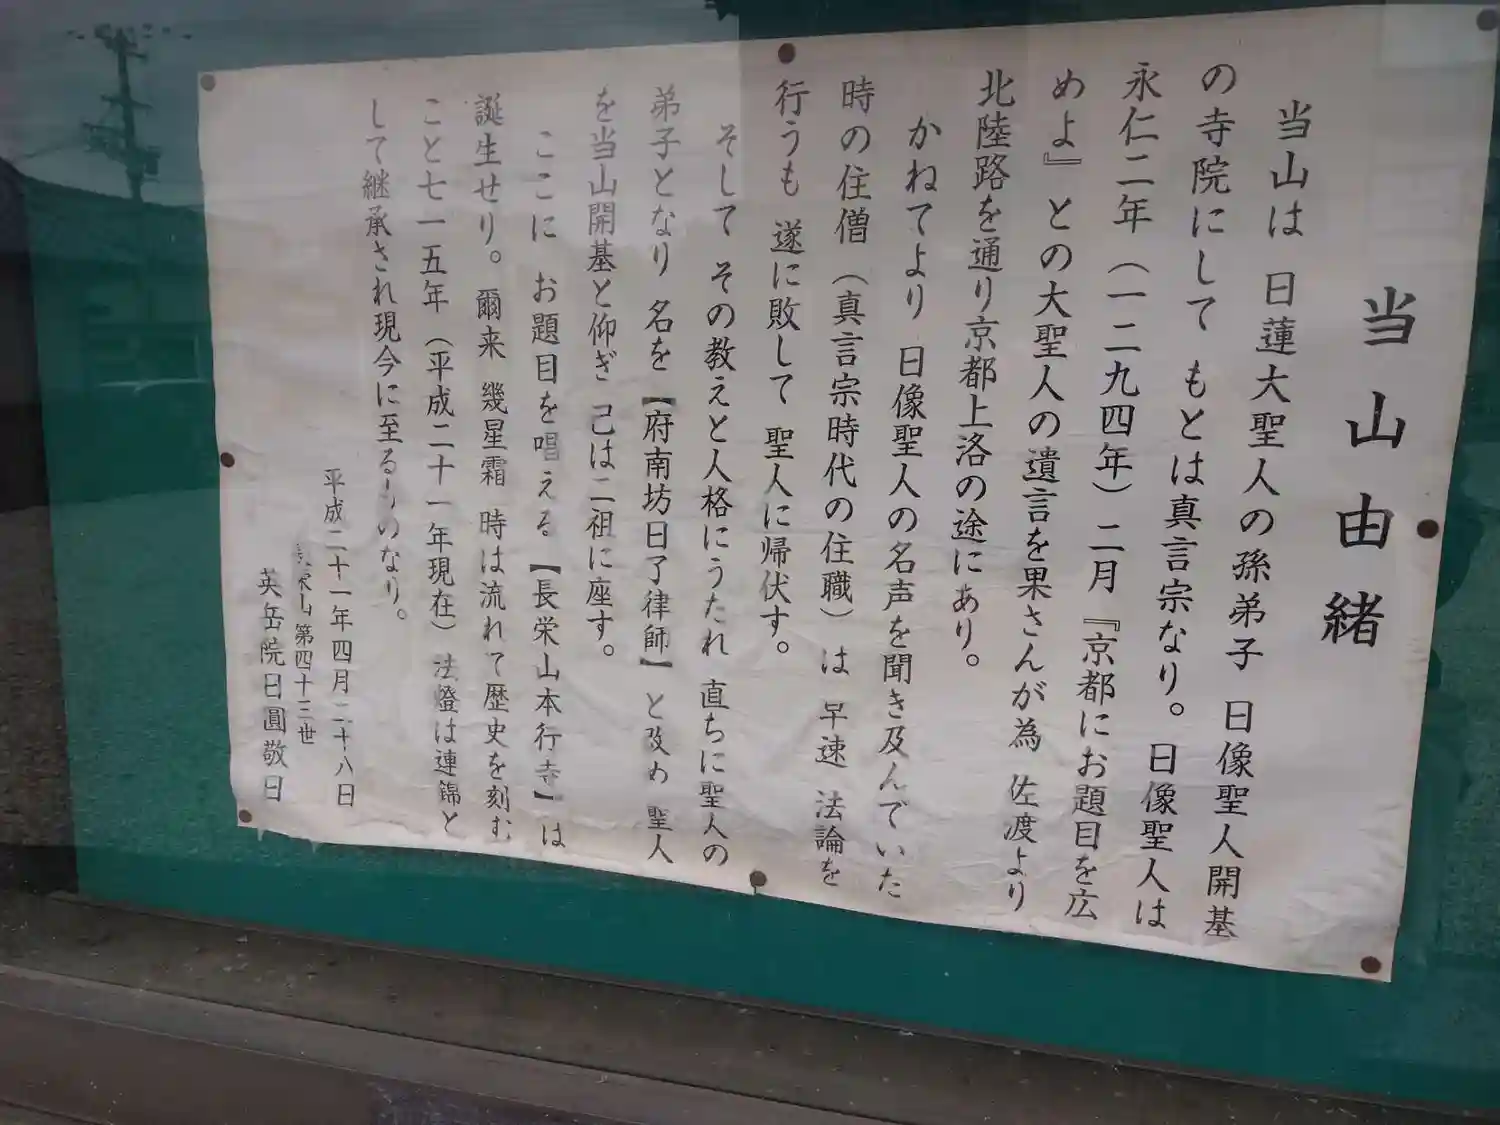 当山由緒
当山は 日蓮大聖人の孫弟子 日像聖人開基
の寺院にして もとは真言宗なり。日像聖人は
永仁二年（一二九四年）二月『京都にお題目を広
めよ』との大聖人の遺言を果さんが為 佐渡より
北陸路を通り京都上洛の途にあり。
かねてより 日像聖人の名声を聞き及んでいた
時の住僧（真言宗時代の住職）は 早速 法論を
行うも 遂に敗して 聖人に帰伏す。
そして その教えと人格にうたれ 直ちに聖人の
弟子となり 名を【府南坊日了律師】と改め 聖人
を当山開基と仰ぎ 己は二祖に座す。
ここに お題目を唱える【長栄山本行寺】は
誕生せり。爾来 幾星霜 時は流れて歴史を刻む
こと七一五年（平成二十一年現在）法燈は連錦と
して継承され現今に至るものなり。
平成二十一年四月二十八日
長栄山第四十三世
英岳院日圓敬白